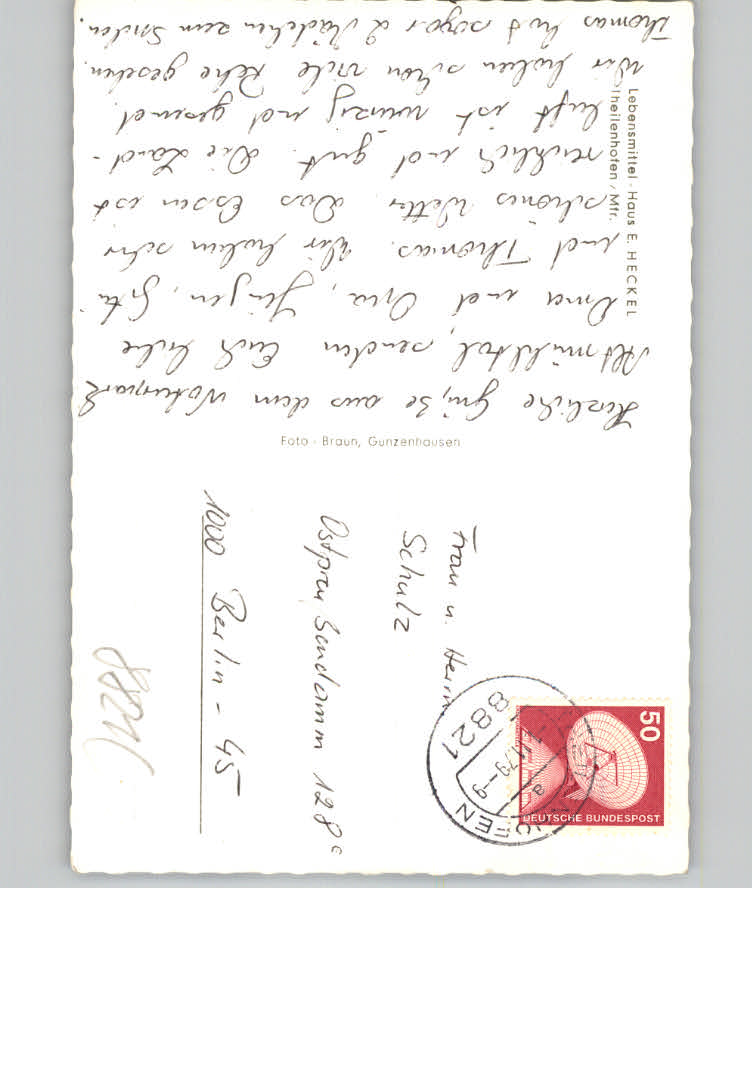 Herzliche Grüße aus dem Naturpark
Altmühltal, senden Euch liebe
Oma und Opa, Jürgen, Gitti
und Thomas. Wir haben sehr
schönes Wetter. Das Essen ist
reichlich und gut. Die Land-
luft ist würzig und gesund.
Wir haben schon viele Rehe gesehen.
Thomas hat sogar 2 Mädchen zum
Lebensmittel-Haus E. HECKEL
Theilenhofen / Mfr.
Foto - Braun, Gunzenhausen
Frau u. Herrn
Schulz
Ostpreußendamm 128c
1000 Berlin - 45
50
DEUTSCHE BUNDESPOST
8821
79-9
a
HOFEN